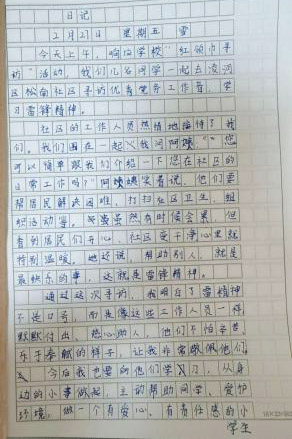 日记
2月27日 星期五 雪
今天上午，响应学校"红领巾寻
访"活动，我们几名同学一起去凌河
区松南社区寻访优秀党务工作者，学
习雷锋精神。
社区的工作人员热情地接待了我
们。我们围在一起，我问阿姨："您
可以简单跟我们介绍一下您在社区的
日常工作吗？"阿姨笑着说，他们要
帮居民解决困难，打扫社区卫生，组
织活动等。虽然有时候会累，但
看到居民们开心，社区变干净心里就
特别温暖。她还说，帮助别人，就是
最快乐的事，这就是雷锋精神。
通过这次寻访，我明白了雷锋精神
不是口号，而是像这些工作人员一样，
默默付出、热心助人。他们不怕辛苦、
乐于奉献的样子，让我非常敬佩他们。
今后我也要向他们学习，从身
边的小事做起，主动帮助同学、爱护
环境，做一个有爱心、有责任感的小
学生